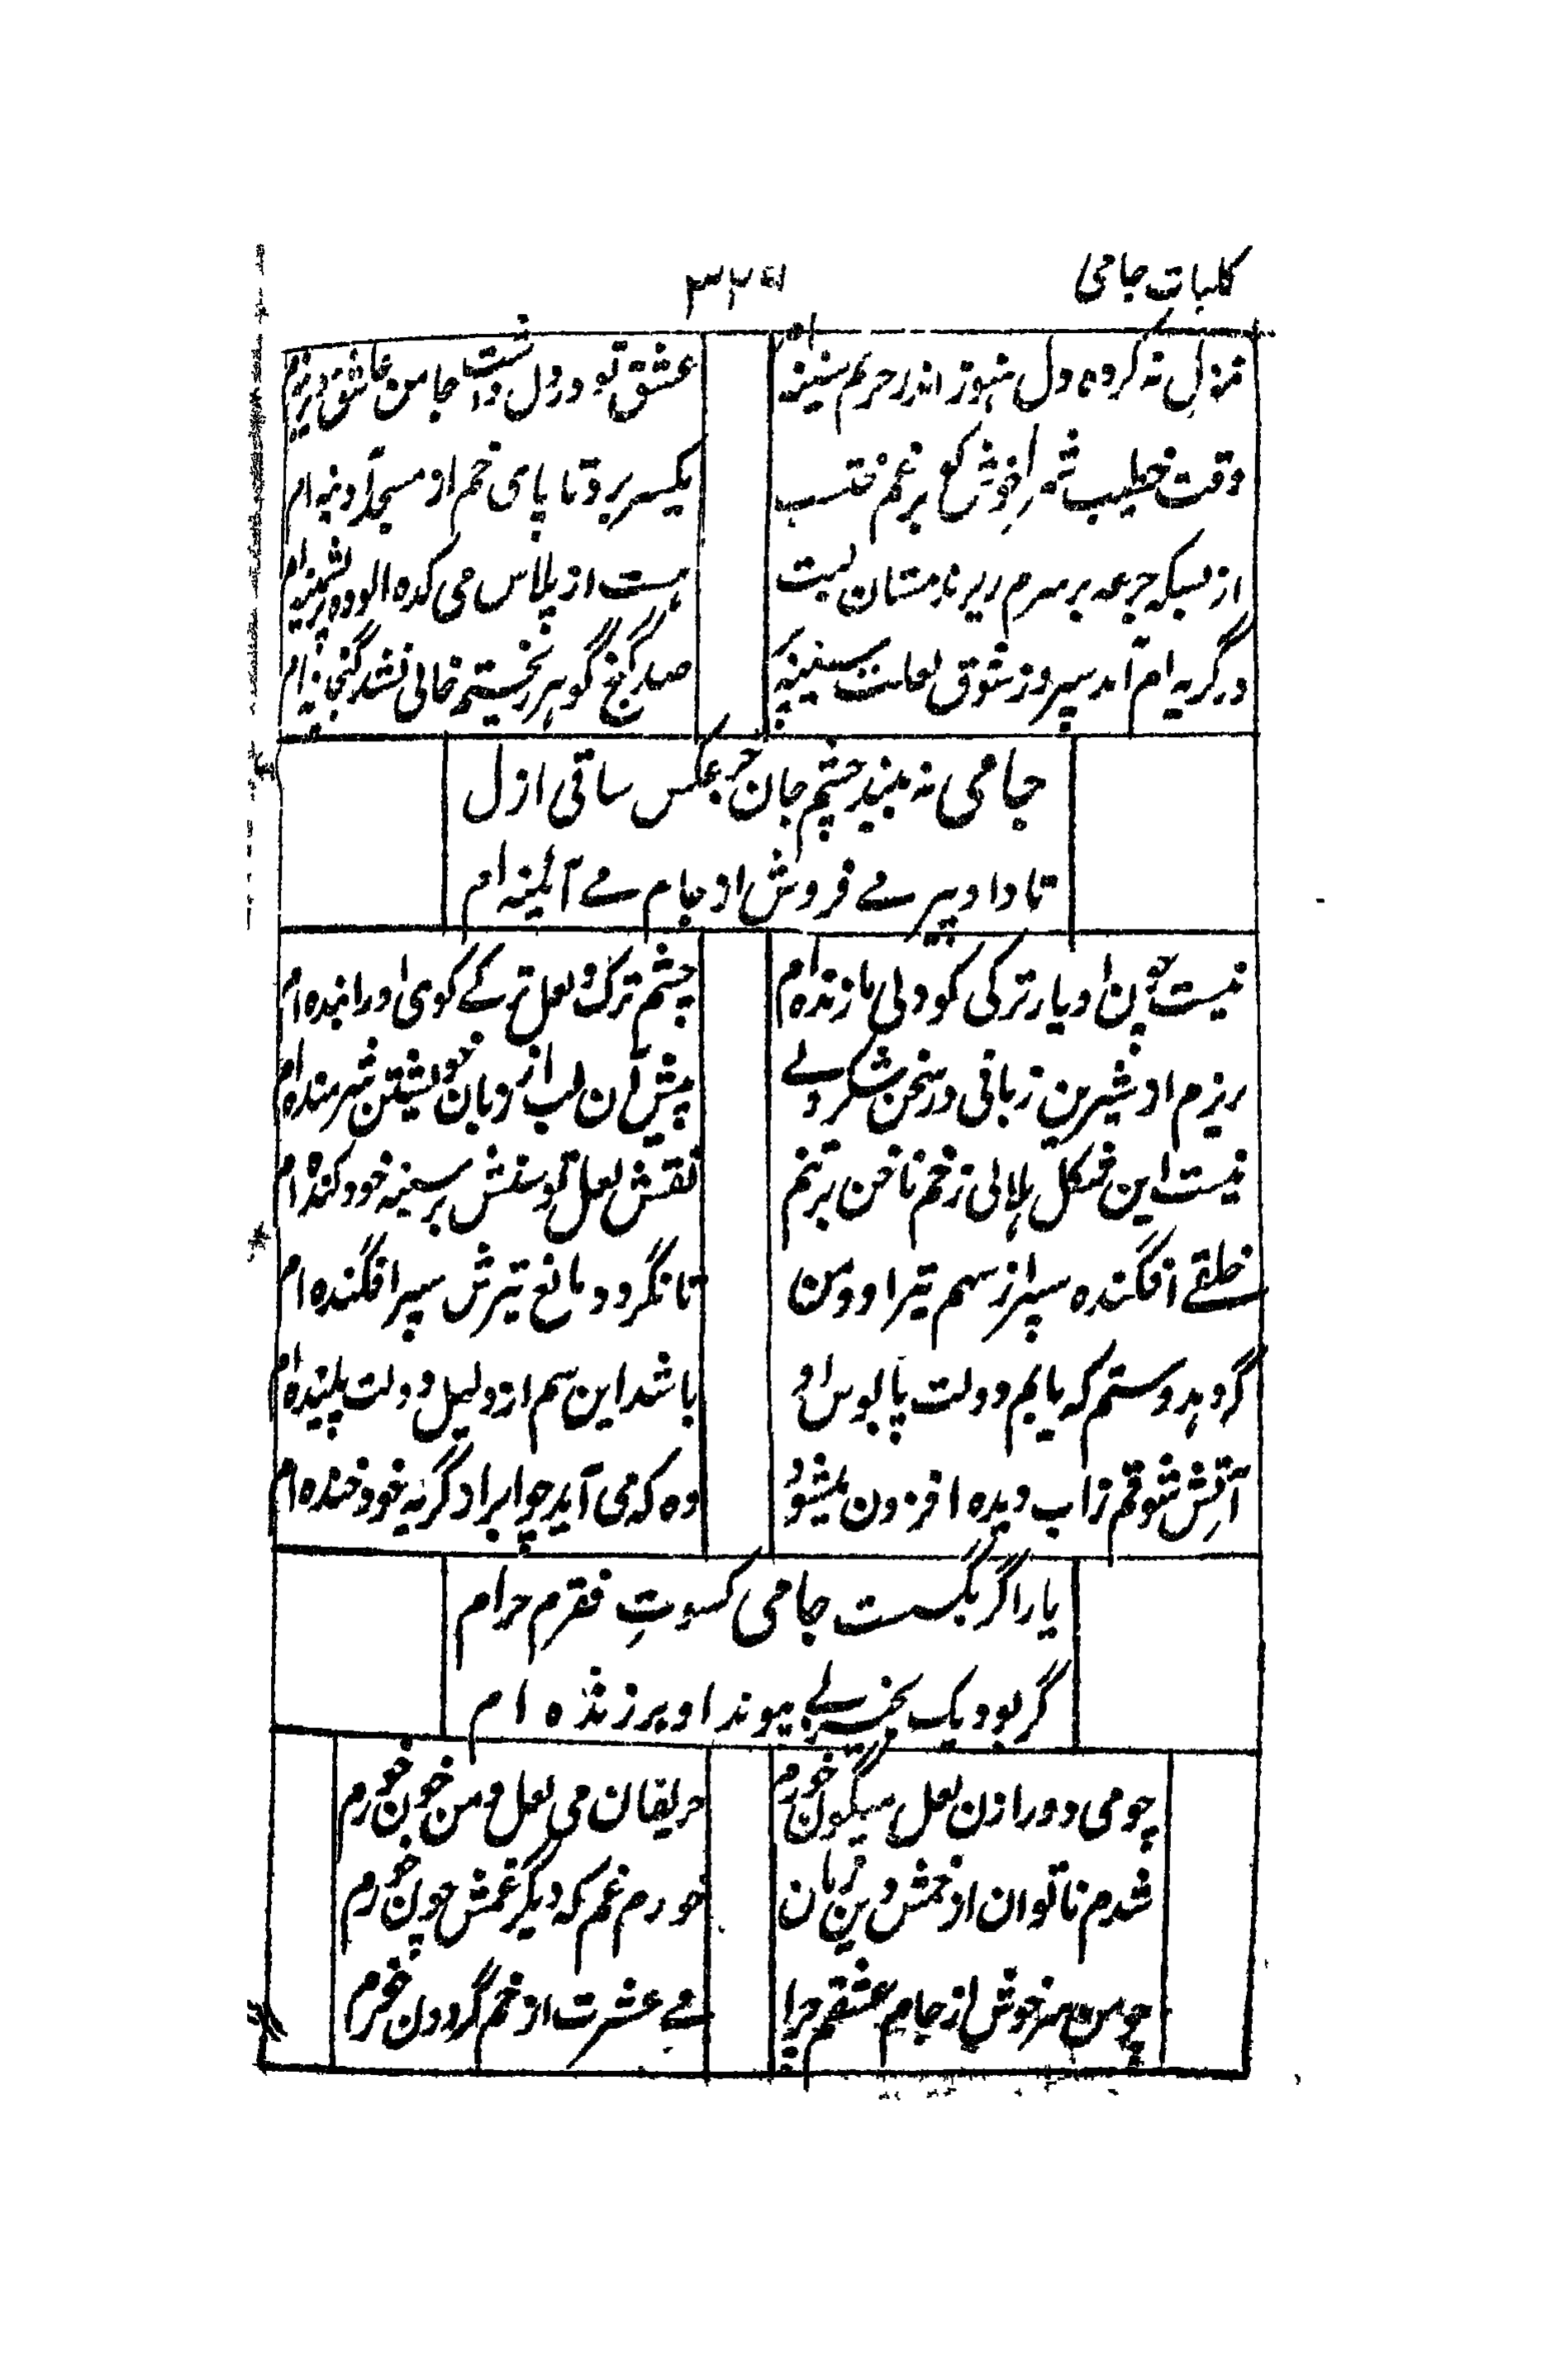 کلیات جامی
۳۳۶
منزل نه کرده دل هنوز اندر حریم سینه ام
عشق تو در دل داشت جا من عاشق دیرینه ام
وقت خطیب شهر را خوش کو برغم محتسب
یکسر برد تا پای خم از مسجد آدینه ام
از بسکه جرعه بر سرم ریزند مستان لبت
هست از پلاس می کده الوده تر پشمینه ام
در گریه ام آمد بسر روز شوق لعلت سینه
صد گنج گوهر ریختم خالی نشد گنجینه ام
جامی نه بیند چشم جان جز عکس ساقی ازل
تا داد پیر مے فروش از جام مے آئینه ام
نیست چون او یار ترکی کو دلی ما زنده ام
چشم ترک و لعل ترکے گوی او را بنده ام
ریزم از شیرین زبانی در سخن شکر ولے
پیش آن لب از دهان خویشتن شرمنده ام
نیست این شکل هلالی زخم ناخن بر تنم
نقش لعل توسنش بر سینه خود کنده ام
خلقے افگنده سپر از سهم تیر او و من
تا نگردد مانع تیرش سپر افگنده ام
گر دهد دستم که یابم دولت پابوس او
باشد این هم از دلیل دولت پاینده ام
آتش شوقم زاب دیده افزون میشود
وه که می آید چو ابر از گریه خود خنده ام
یار اگر بگسست جامی کسوتِ فقرم حرام
گر بود یک بخیه بے پیوند او بر ژنده ام
چو می دور ازن لعل میگون خورم
حریفان می لعل و من خون خورم
شدم ناتوان از غمش وین زمان
خورم غم که دیگر غمش چون خورم
چو من سر خوش از جام عشقم چرا
مے عشرت از خم گردون خورم